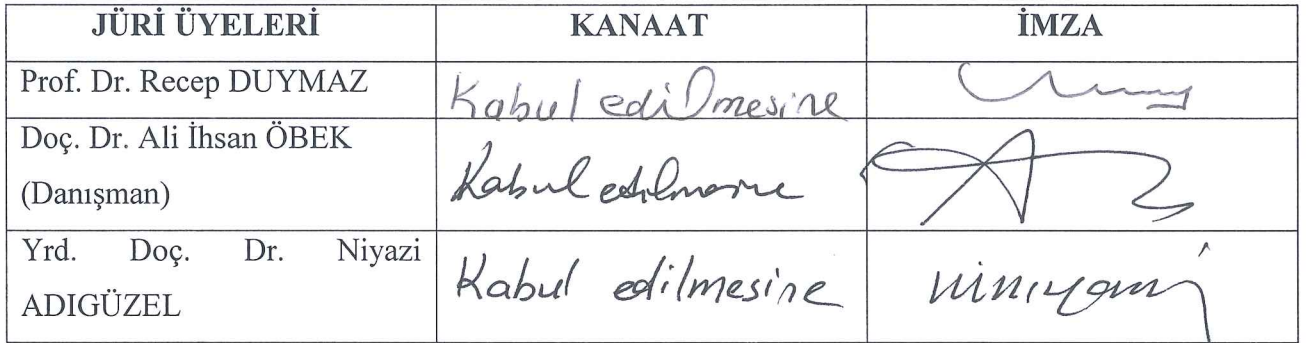 JÜRİ ÜYELERİ KANAAT İMZA
Prof. Dr. Recep DUYMAZ Kabul edilmesine
Doç. Dr. Ali İhsan ÖBEK
(Danışman) Kabul edilmesine
Yrd. Doç. Dr. Niyazi
ADIGÜZEL Kabul edilmesine